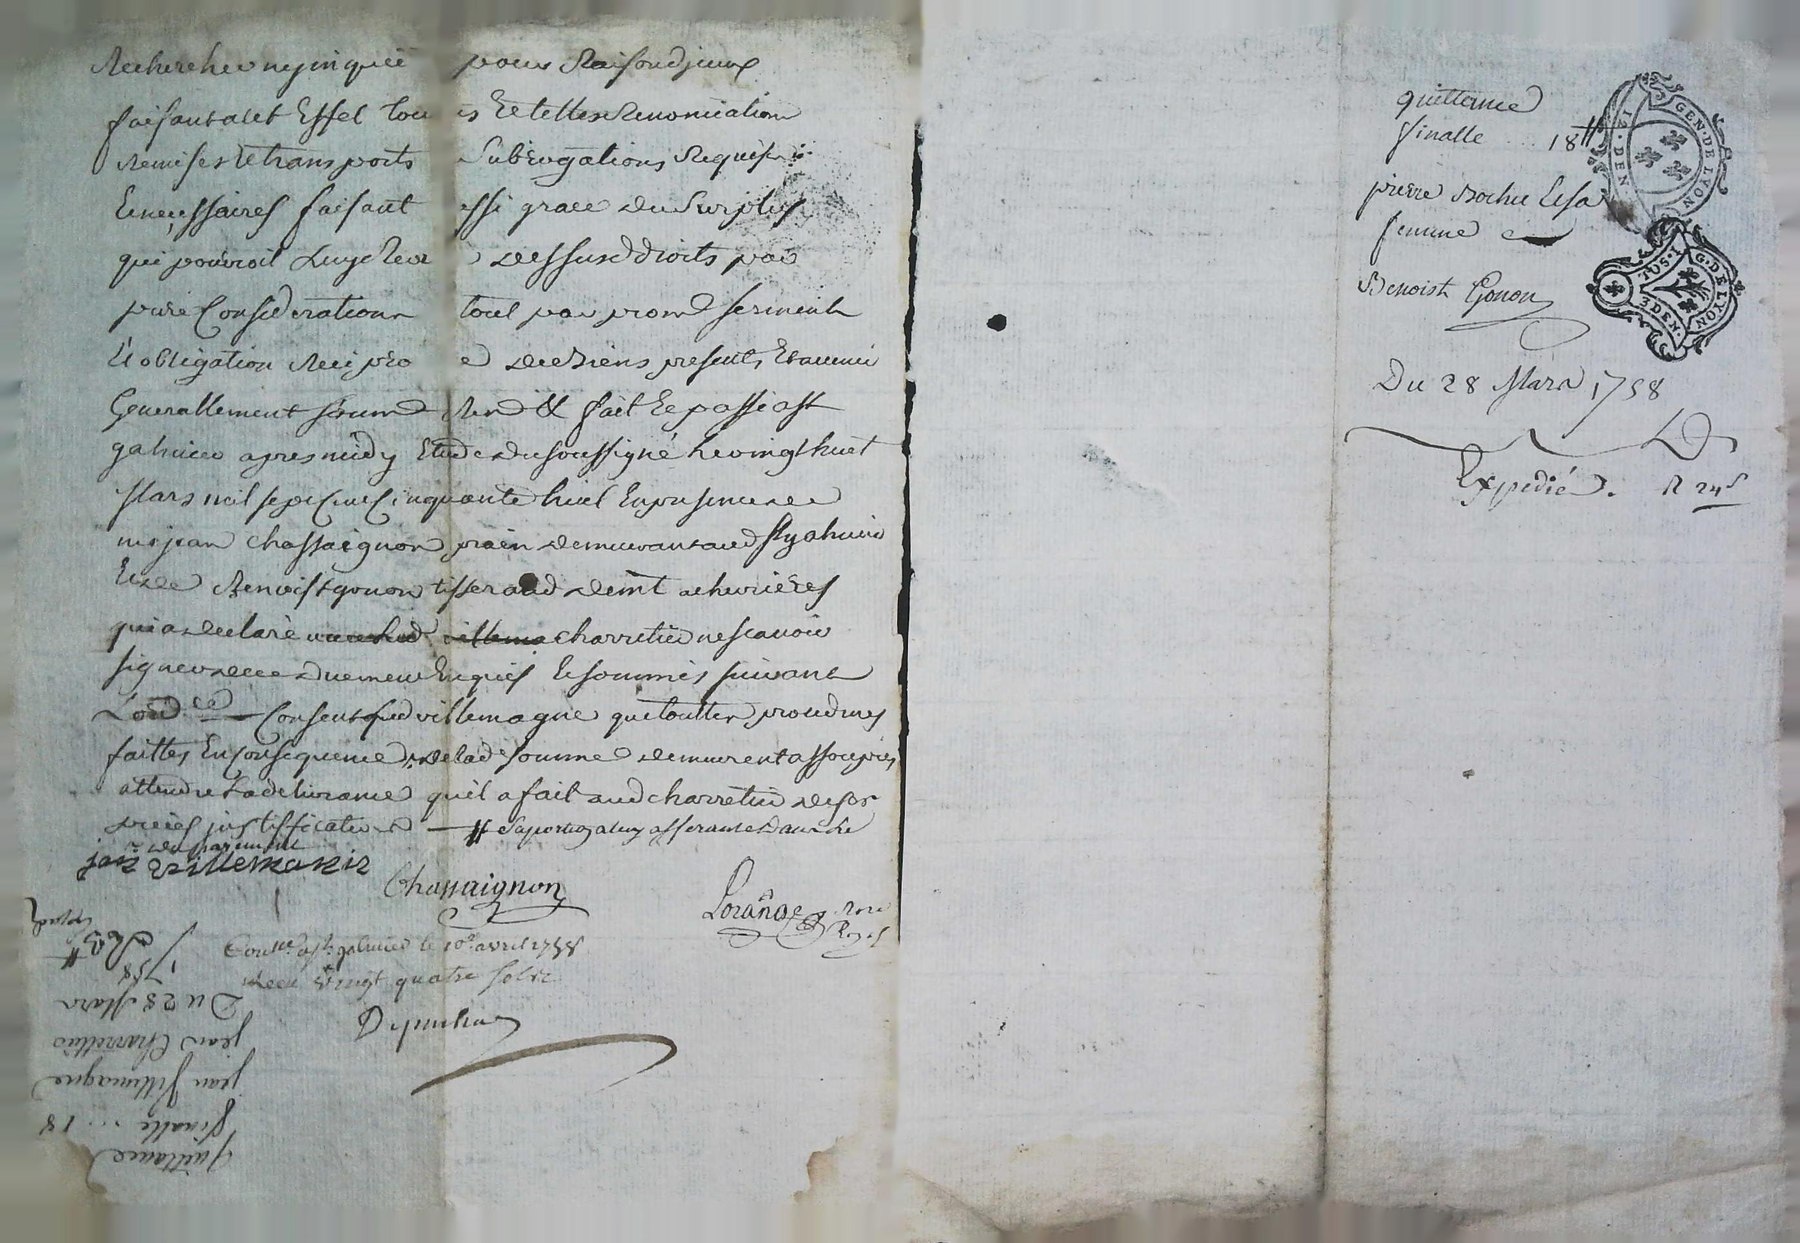 Recherché ny inquiè pour Raison d'jceux
faisant a cet Effet tou s Et telles Renonciation
Remises Et transports Subrogations Requises
Et necessaires faisant ssi grace du Surplus
qui pouvroit Luy Rev dessusd droits par
pure Consideration tout par prom serment
Et obligation Recipro e de biens presents Et avenir
Generallement soum Ren & fait Et passé a st
galmier apres midy Etude du soussigné Le vingt huit
Mars mil sept Cent Cinquante huit En presence de
me jean chassaignon praèn demeurant aud st galmier
Et de Benoist gonon tisserand de mt acheurières
qui a declaré charretier ne scavoir
signer de ce duement Enquis Et sommés suivant
Lord. ce Consent led villemagne que touttes procedures
faittes En Consequence de lad somme demeurent assoupies
attendu La delivrance qu'il a fait aud charretier de ses
pieces justifficatives sa portion a luy afferante dans le
jan villemanie
Chassaignon
Lorange Nore Roy.l
Conlle a st galmier le 10e avril 1758
Receu vingt quatre sols
Quittance
finalle ... 18
jean Villemagne
jean Charrettier
Du 28 Mars
1758
quittance
finalle ... 18 tt
pierre Bochu Et sa
femme a
Benoist Gonon
Du 28 Mars 1758
Expedié. R 24 s
GEN. DE LYON
DEN
G. DE LYON
3. DEN.